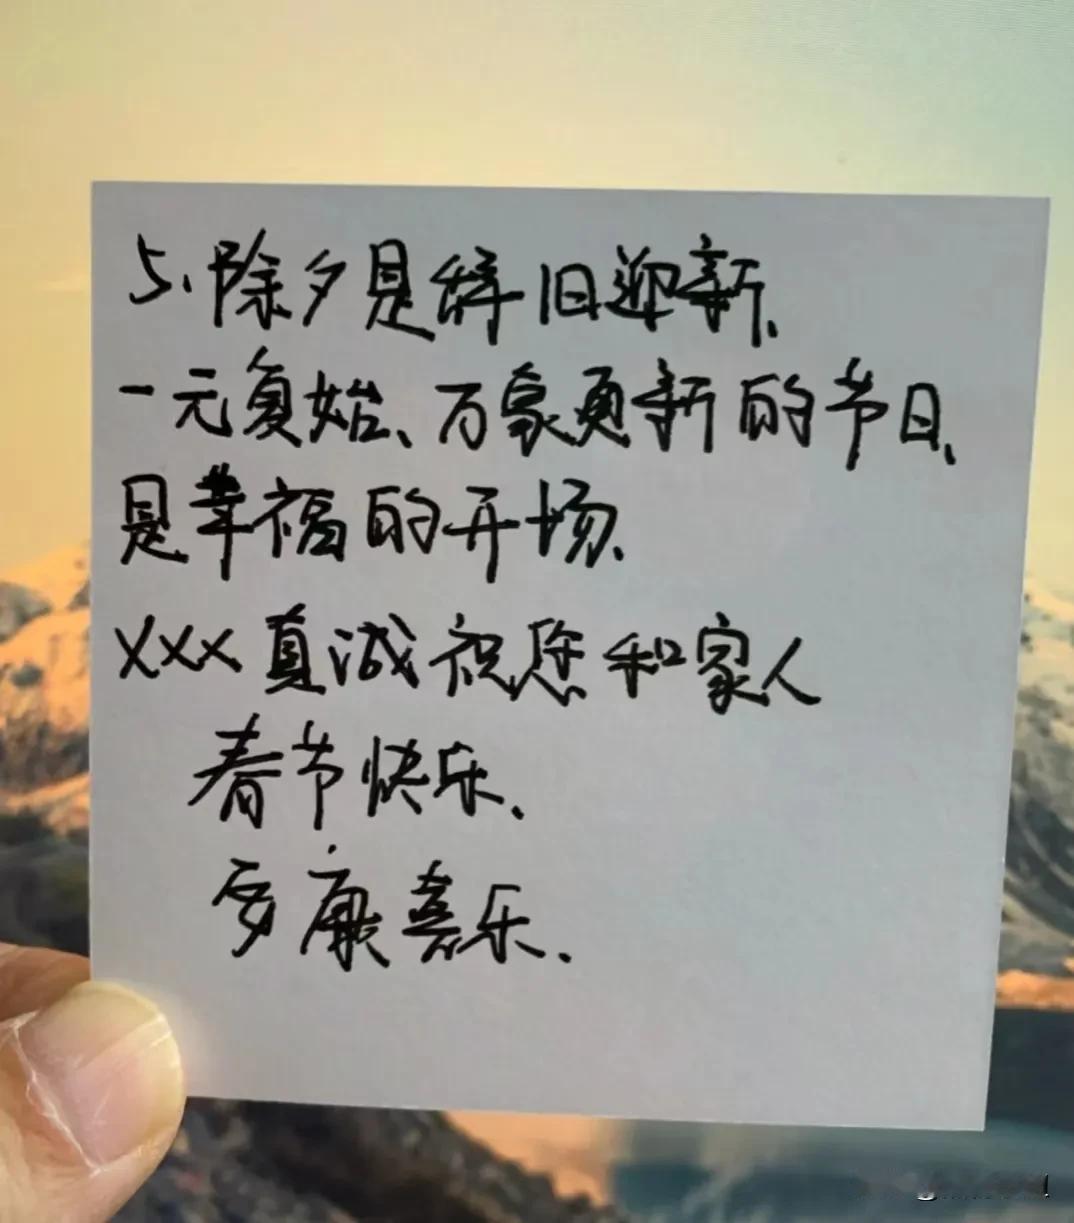 5、除夕是辞旧迎新、
一元复始、万象更新的节日、
是幸福的开场、
XXX真诚祝您和家人
春节快乐、
安康喜乐.